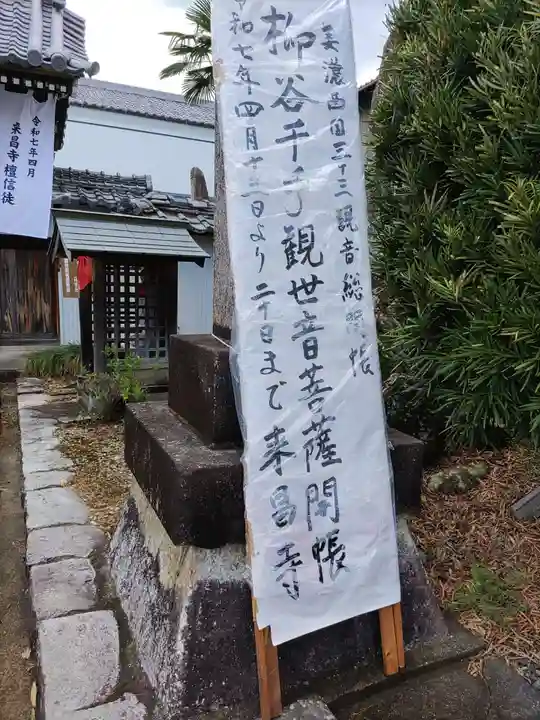 美濃西国三十三観音総開帳
柳谷千手観世音菩薩開帳
令和七年四月十三日より二十日まで来昌寺
令和七年四月
来昌寺檀信徒